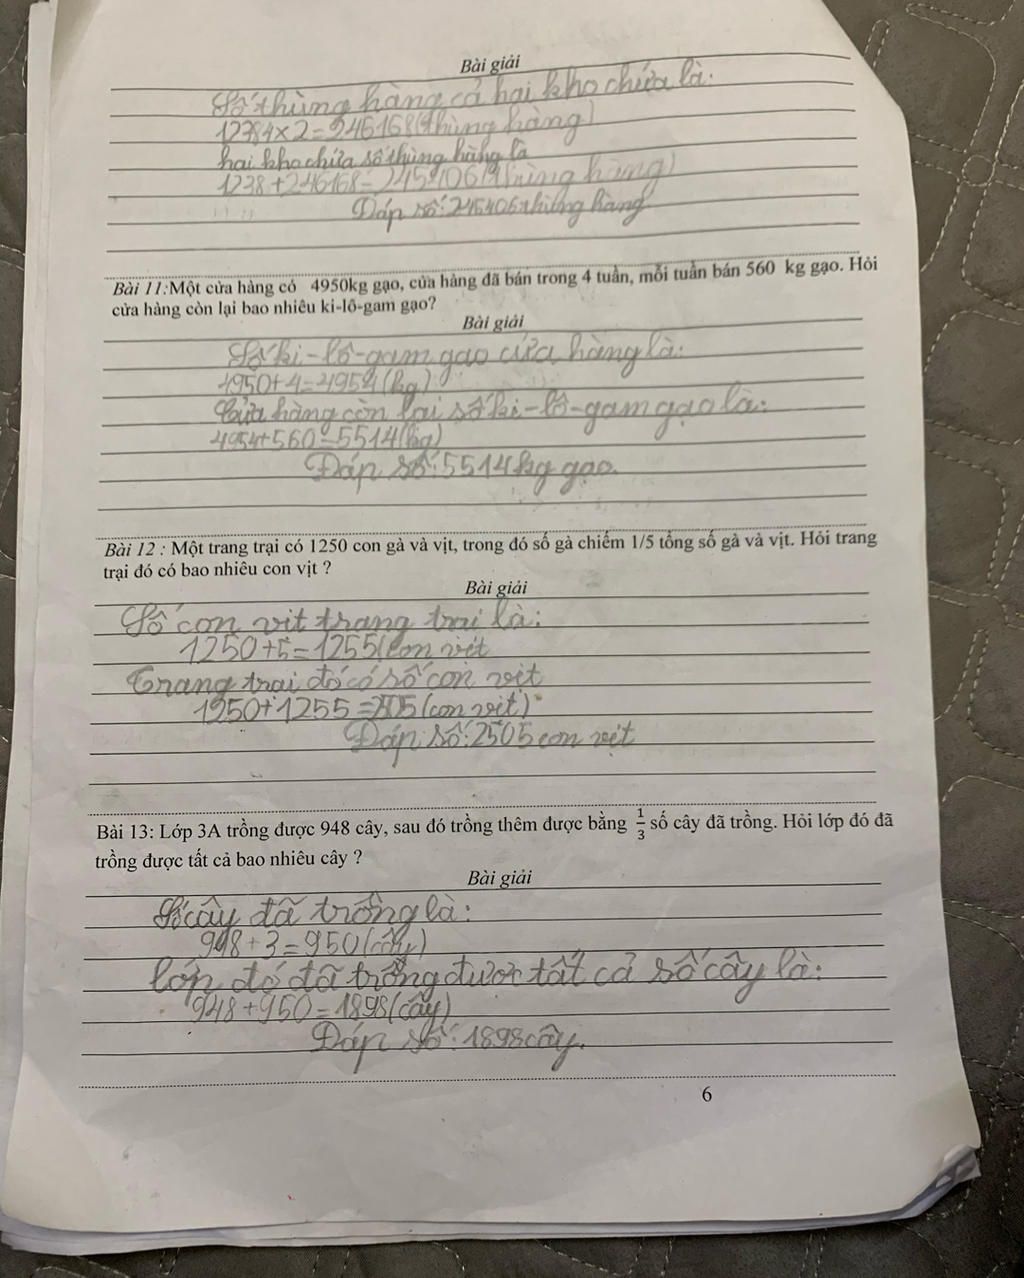 Bài giải
Số thùng hàng cả hai kho chứa là:
12384×2=246168(thùng hàng)
hai kho chứa số thùng hàng là
1238+246168=245406(thùng hàng)
Đáp số:245406thùng hàng
Bài 11:Một cửa hàng có 4950kg gạo, cửa hàng đã bán trong 4 tuần, mỗi tuần bán 560 kg gạo. Hỏi
cửa hàng còn lại bao nhiêu ki-lô-gam gạo?
Bài giải
Số ki-lô-gam gạo cửa hàng là:
4950+4=4954(kg)
Cửa hàng còn lại số ki-lô-gam gạo là:
4954+560=5514(kg)
Đáp số:5514kg gạo.
Bài 12 : Một trang trại có 1250 con gà và vịt, trong đó số gà chiếm 1/5 tổng số gà và vịt. Hỏi trang
trại đó có bao nhiêu con vịt ?
Bài giải
Số con vit trang trai là:
1250+5=1255(con vit
Trang trai đó có số con vịt
1250+1255=2505(con vịt)
Đáp số:2505con vịt
Bài 13: Lớp 3A trồng được 948 cây, sau đó trồng thêm được bằng 1/3 số cây đã trồng. Hỏi lớp đó đã
trồng được tất cả bao nhiêu cây ?
Bài giải
Số cây đã trồng là:
948+3=950(cây)
lớp đó đã trồng được tất cả số cây là:
948+950=1898(cây)
Đáp số:1898cây.
6